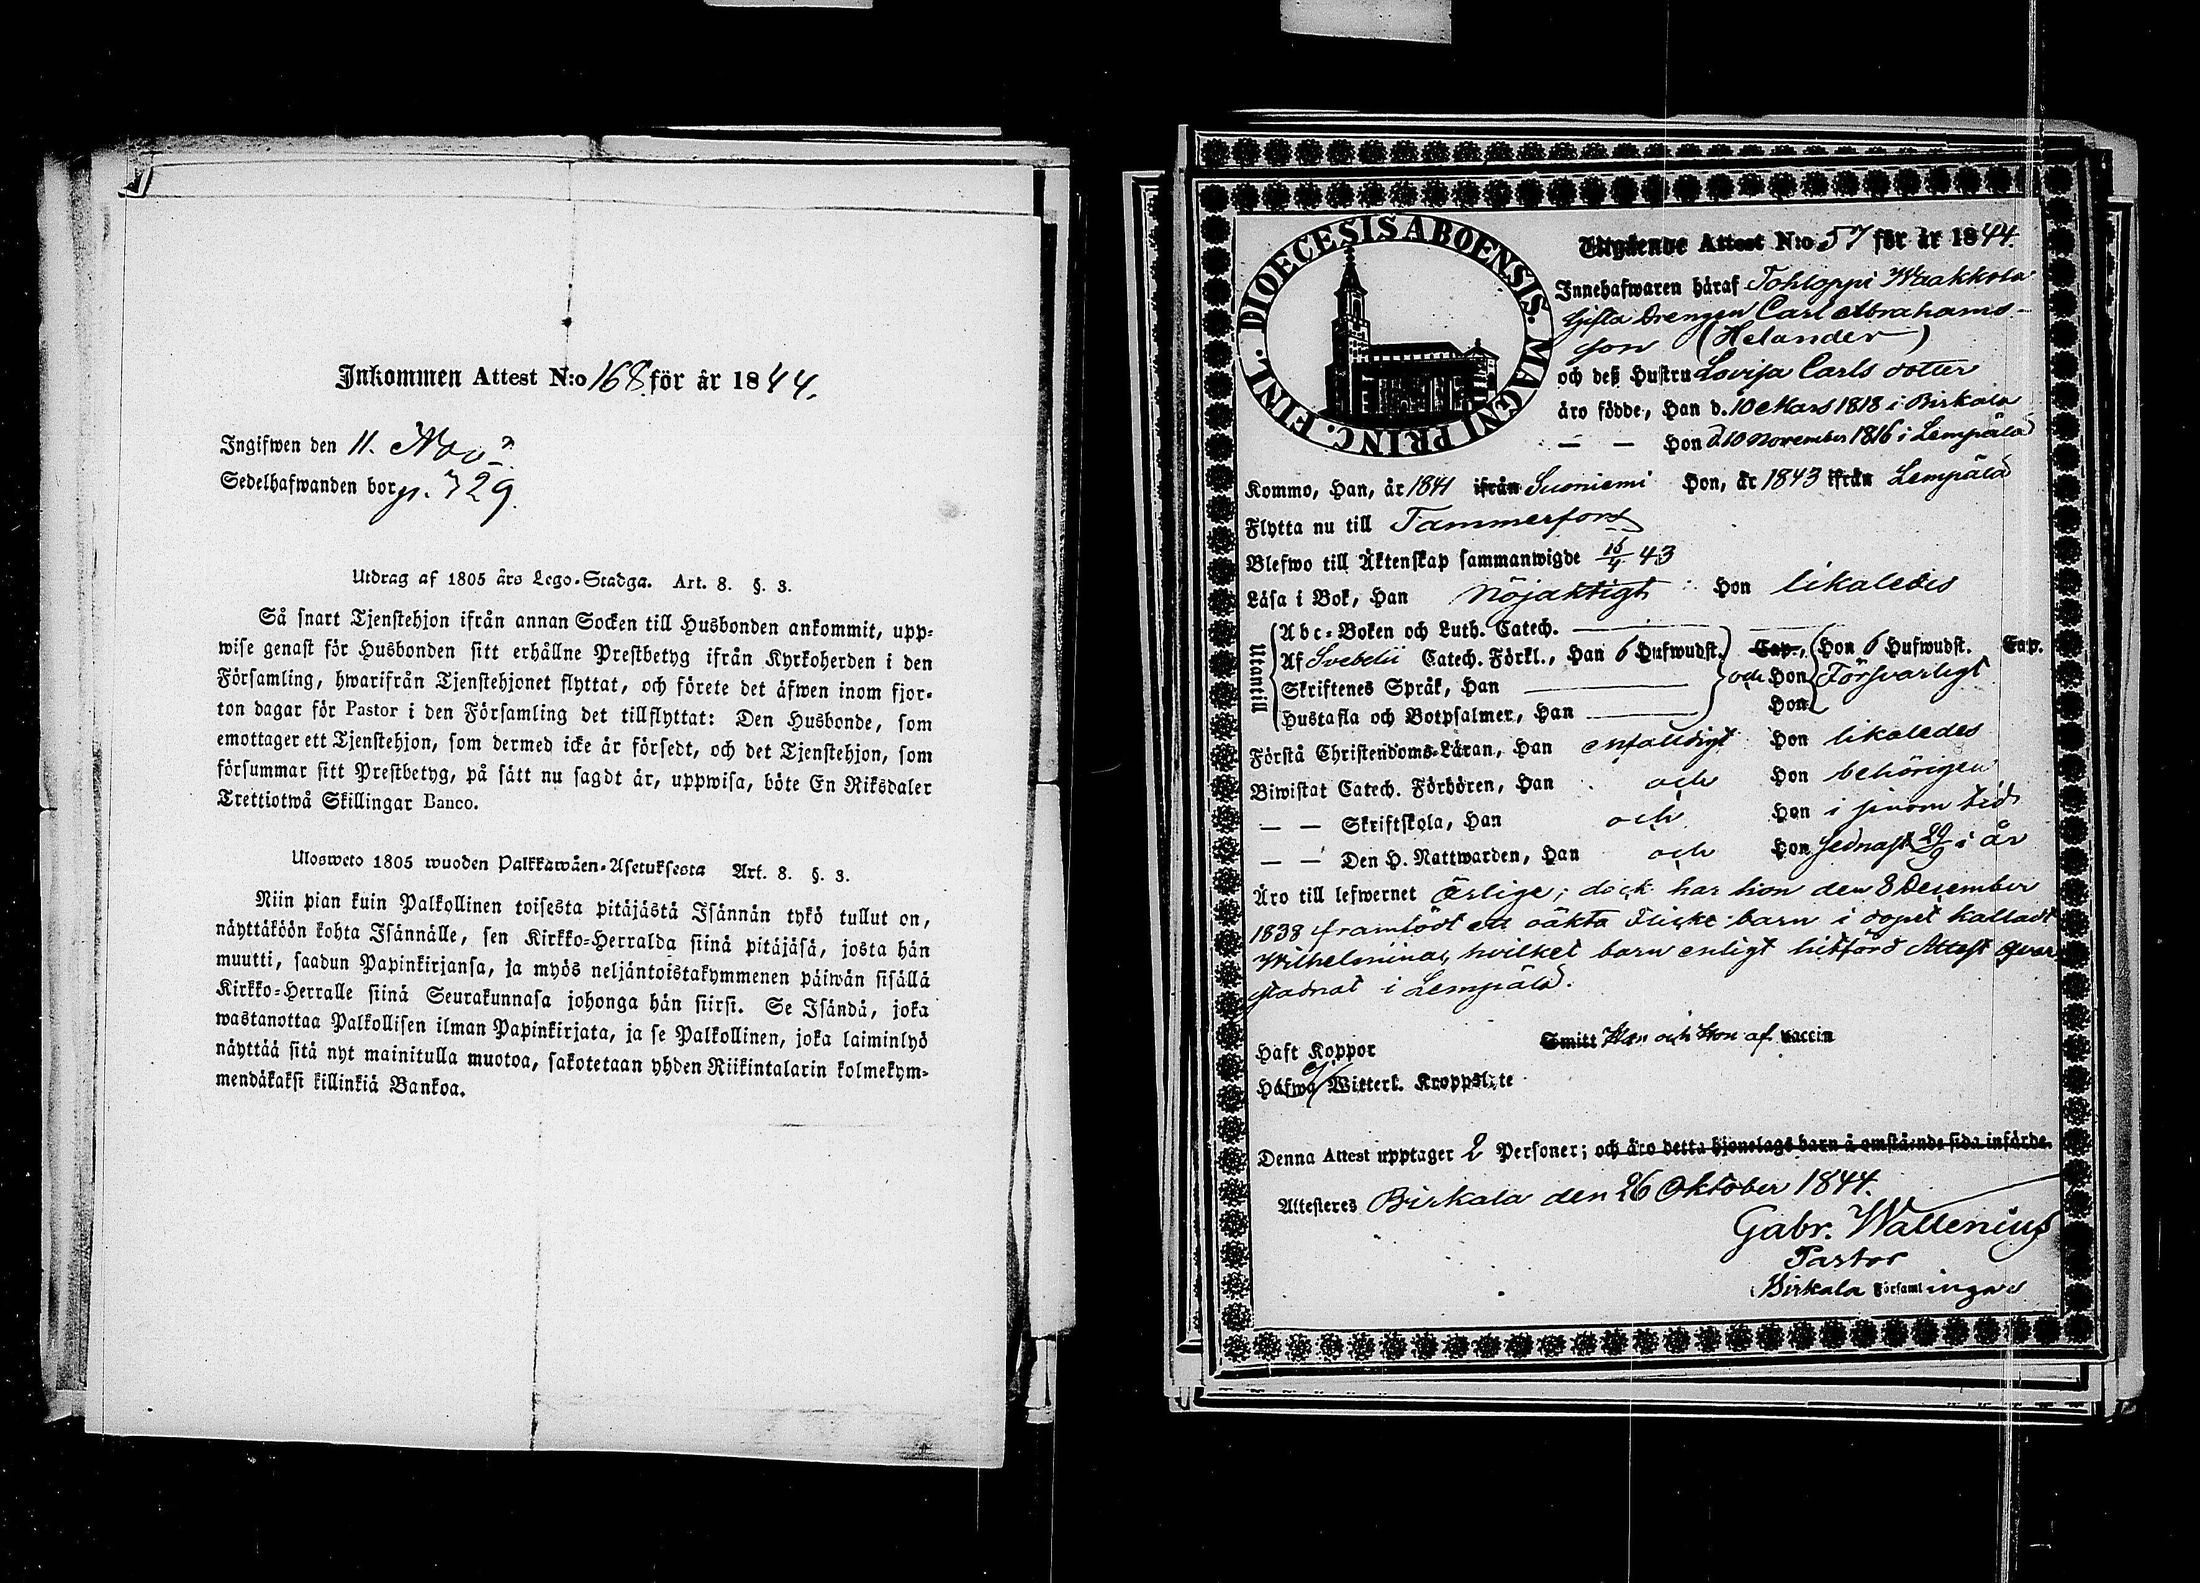 Inkommen Attest N:o 168 för år 1844.
Ingifwen den 11. Nov.
Sedelhafwanden bor p. 329.
Utdrag af 1805 års Lego-Stadga. Art. 8. §. 3.
Så snart Tjenstehjon ifrån annan Socken till Husbonden ankommit, upp-
wise genast för Husbonden sitt erhållne Prestbetyg ifrån Kyrkoherden i den
Församling, hwarifrån Tjenstehjonet flyttat, och förete det äfwen inom fjor-
ton dagar för Pastor i den Församling det tillflyttat: Den Husbonde, som
emottager ett Tjenstehjon, som dermed icke är försedt, och det Tjenstehjon, som
försummar sitt Prestbetyg, på sätt nu sagdt är, uppwisa, böte En Riksdaler
Trettiotwå Skillingar Banco.
Ulosweto 1805 wuoden Palkkawäen-Asetuksesta Art. 8. §. 3.
Niin pian kuin Palkollinen toisesta pitäjästä Isännän tykö tullut on,
näyttäköön kohta Isännälle, sen Kirkko-Herralda siinä pitäjäsä, josta hän
muutti, saadun Papinkirjansa, ja myös neljäntoistakymmenen päiwän sisällä
Kirkko-Herralle siinä Seurakunnasa johonga hän siirsi. Se Isändä, joka
wastanottaa Palkollisen ilman Papinkirjata, ja se Palkollinen, joka laiminlyö
näyttää sitä nyt mainitulla muotoa, sakotetaan yhden Riikintalarin kolmekym-
mendäkaksi killinkiä Bankoa.
FINL. DIOECESIS ABOENSIS. MAGNI PRINC.
Utgående Attest N:o 57 för år 1844.
Innehafwaren häraf Tohloppi Waakkola
Gifta Drengen Carl Abrahams-
son (Helander)
och deß Hustru Lovisa Carls dotter
äro födde, Han d. 10 Mars 1818 i Birkala
— — Hon d. 10 November 1816 i Lempälä
Kommo, Han, år 1841 ifrån Suoniemi Hon, år 1843 ifrån Lempälä
Flytta nu till Tammerfors
Blefwo till Äktenskap sammanwigde 15/4 43
Läsa i Bok, Han nöjaktigt Hon likaledes
Utantill
Abc-Boken och Luth. Catech.
Af Svebelii Catech. Förkl., Han 6 Hufwudst. Cap., Hon 6 Hufwudst. Cap.
Skriftenes Språk, Han och Hon Försvarligt
Hustafla och Botpsalmer, Han Hon
Förstå Christendoms-Läran, Han enfaldigt Hon likaledes
Biwistat Catech. Förhören, Han och Hon behörigen
— — Skriftskola, Han och Hon i sinom tid
— — Den H. Nattwarden, Han och Hon sednast 29/9 i år
Äro till lefwernet ärlige; dock har hon den 8 December
1838 framfödt ett oäkta Flicke-barn i dopet kalladt
Wilhelmina, hvilket barn enligt hitförd Attest qvar
stadnat i Lempälä.
Haft Koppor Smitt Han och Hon af vaccin
Hafwa ej Witterl. Kroppslyte
Denna Attest upptager 2 Personer; och äro detta hjonelags barn å omstående sida införde.
Attesteres Birkala den 26 Oktober 1844.
Gabr. Wallenius
Pastor
i Birkala Församlingar